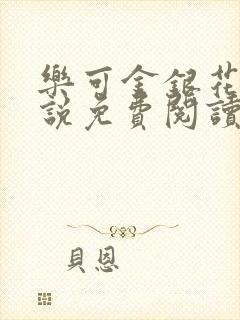 樂可金銀花
說免費閱讀
貝恩